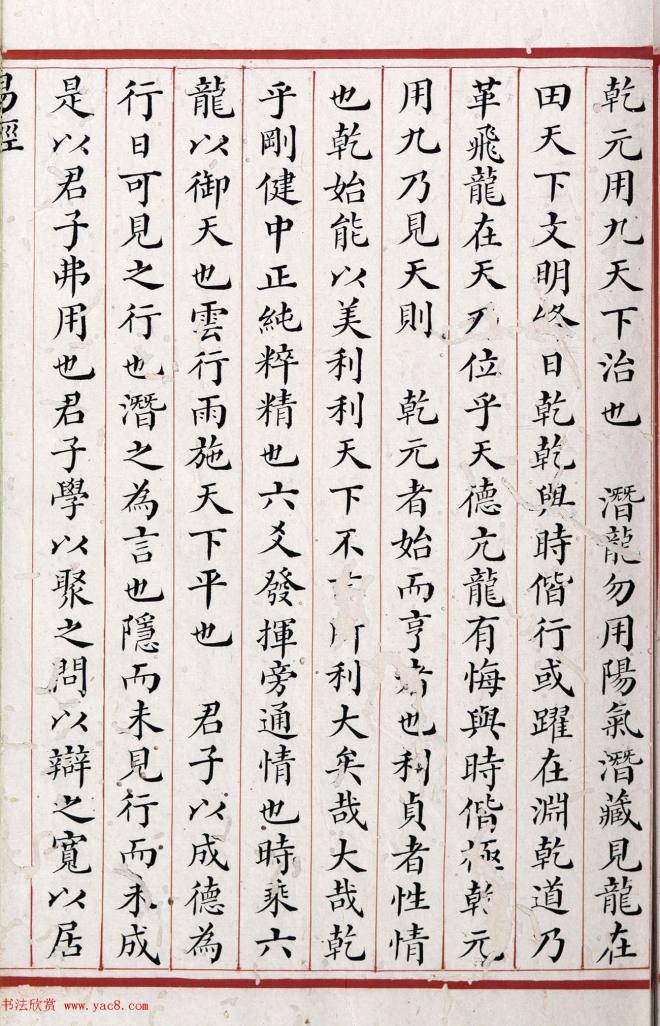 乾元用九天下治也　潛龍勿用陽氣潛藏見龍在
田天下文明終日乾乾與時偕行或躍在淵乾道乃
革飛龍在天乃位乎天德亢龍有悔與時偕極乾元
用九乃見天則　乾元者始而亨者也利貞者性情
也乾始能以美利利天下不言所利大矣哉大哉乾
乎剛健中正純粹精也六爻發揮旁通情也時乘六
龍以御天也雲行雨施天下平也　君子以成德為
行日可見之行也潛之為言也隱而未見行而未成
是以君子弗用也君子學以聚之問以辯之寬以居
易經
书法欣赏 www.yac8.com